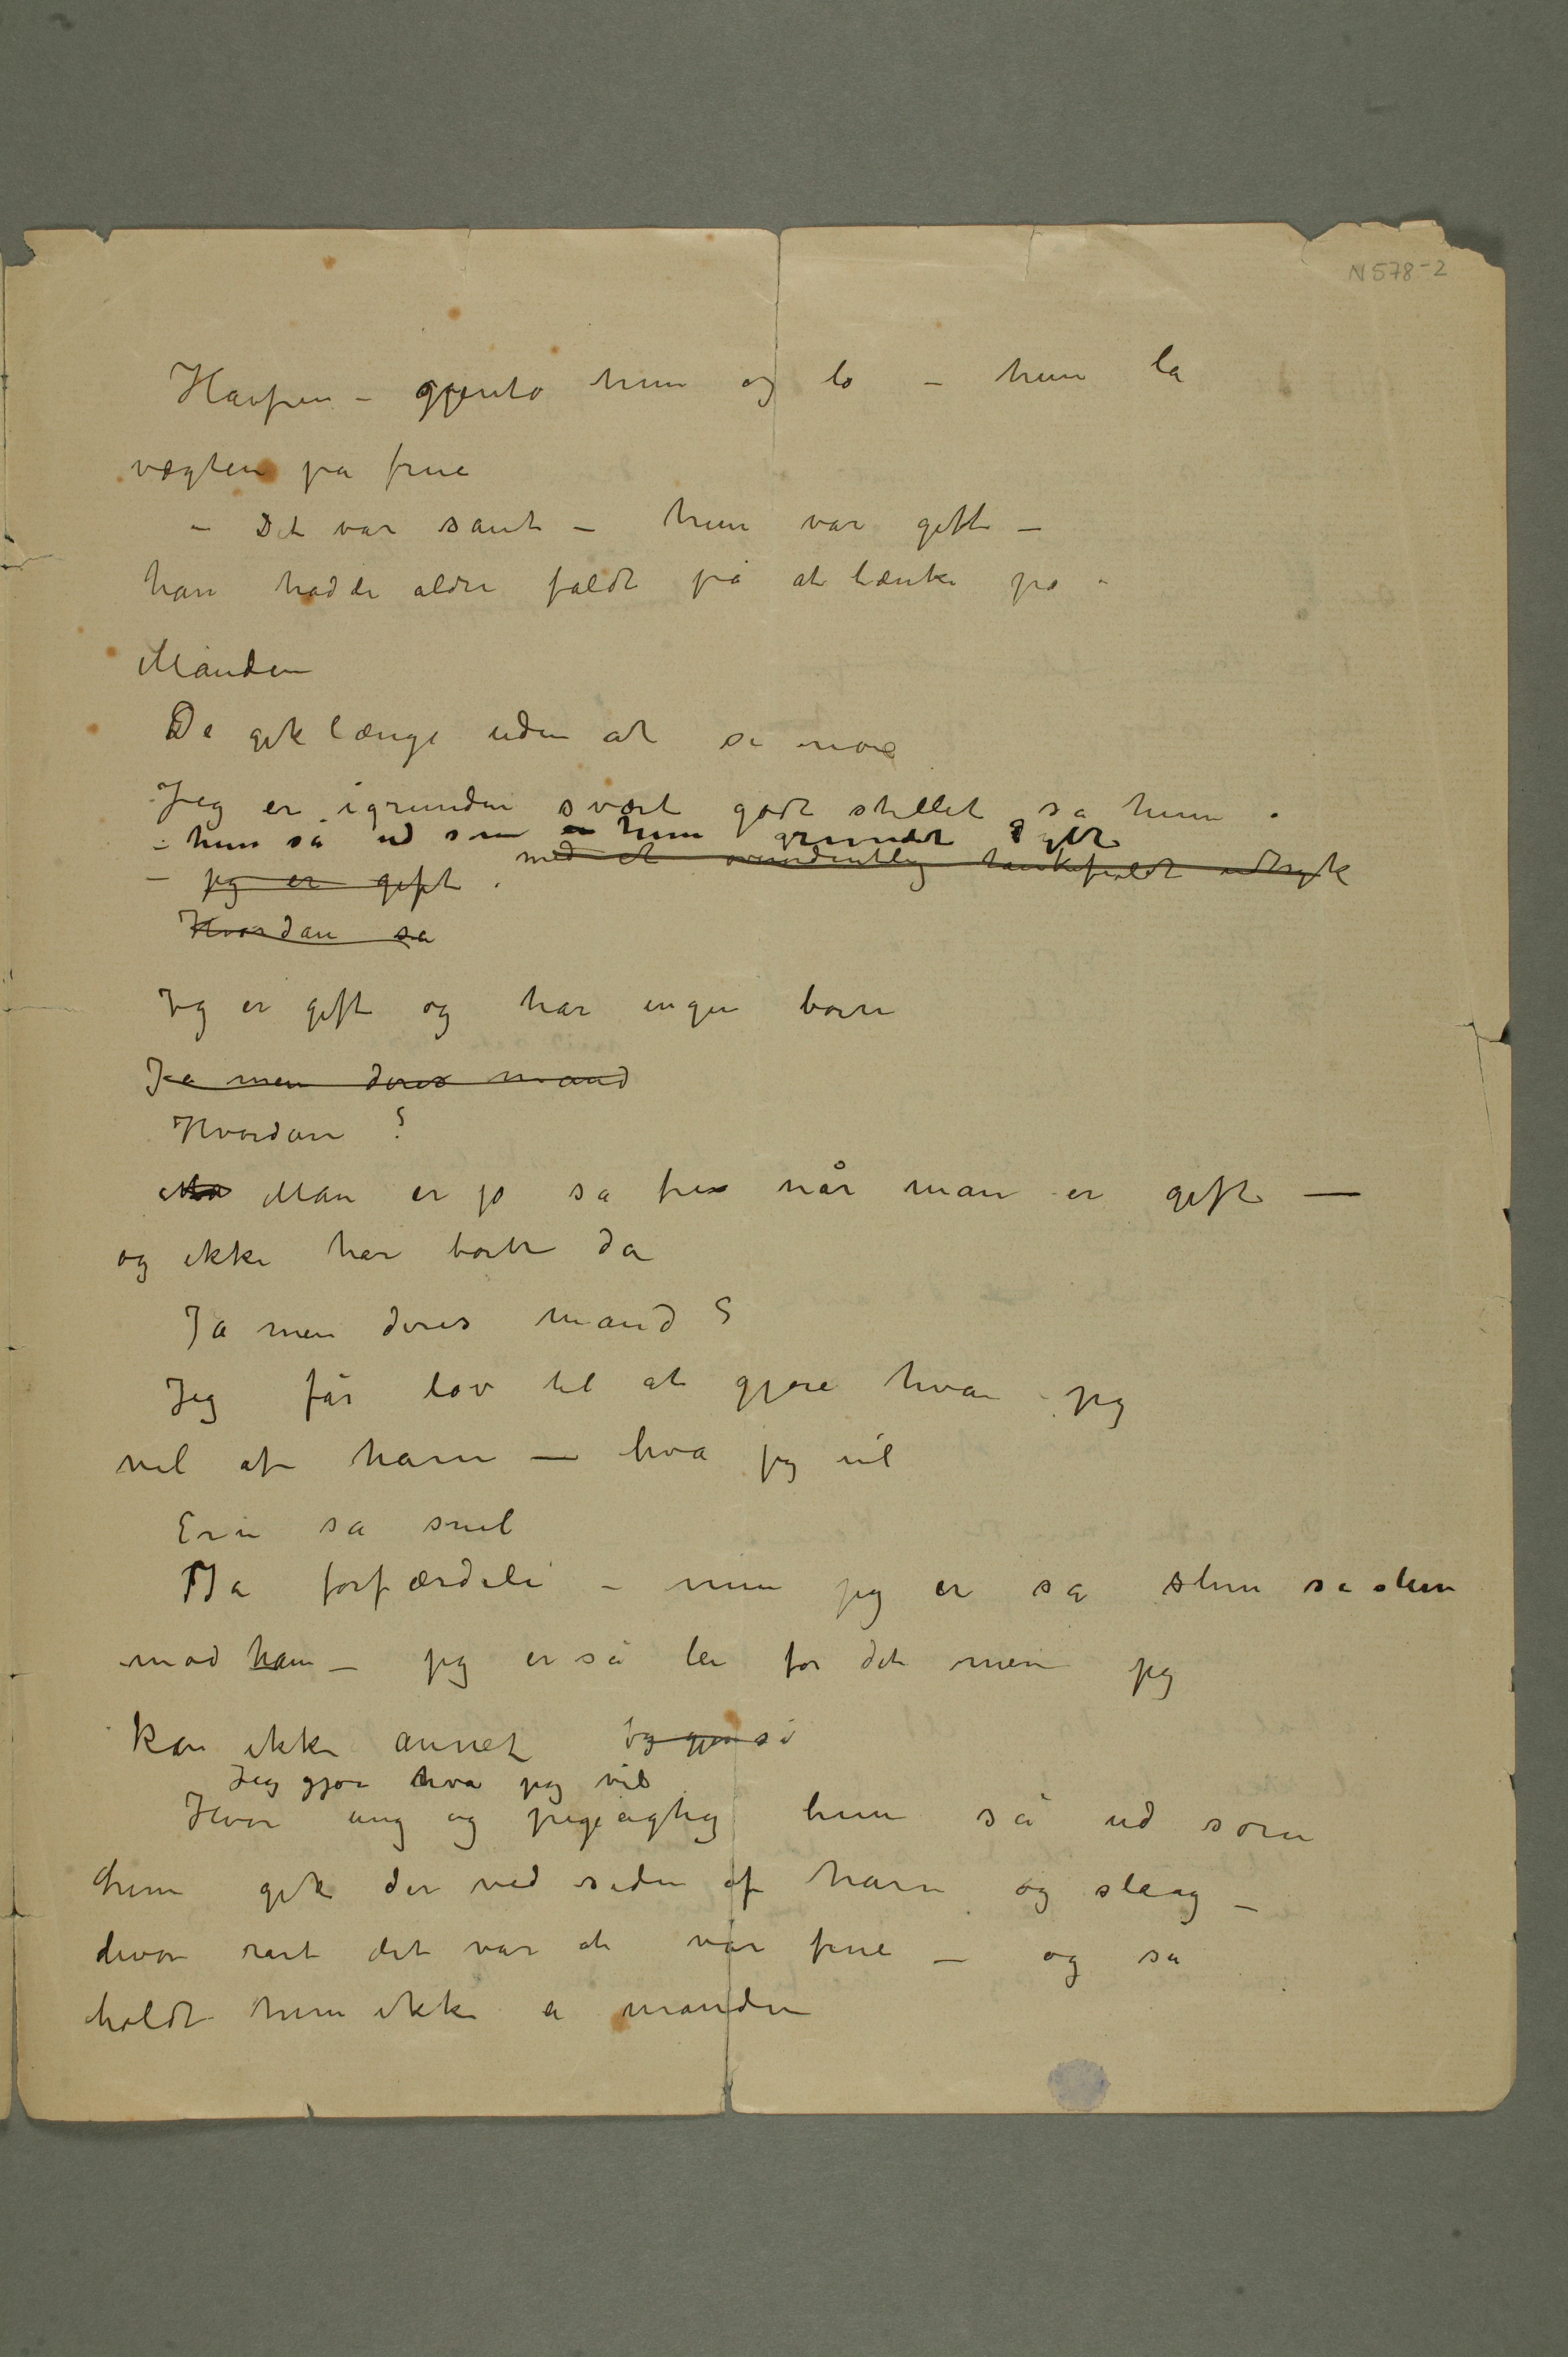 N 578-2
Havfrue – gjento hun og lo – hun la
vægten på frue
– Det var sant – hun var gift –
han hadde aldri faldt på at tænke på
Manden
De gik længe uden at si noe
Jeg er igrunden svært godt stillet sa hun.
– hun så ud som hun grundet
– jeg er gift. med et overordentlig tankefuldt udtryk
Hvordan sa
Jeg er gift og har ingen børn
Ja men deres mand
Hvordan?
Man er jo så fri når man er gift –
og ikke har børn da
Ja men deres mand?
Jeg får lov til at gjøre hva jeg
vil af ham – hva jeg vil
så snil
Ja forfærdeli – men jeg er så slem så slem
mod ham – jeg er så lei for det men jeg
kan ikke annet
Jeg gjør hva jeg vil
Hvor ung og pigeagtig hun så ud som
hun gik der ved siden af ham og slang –
hvor rart det var at var frue – og så
holdt hun ikke a manden